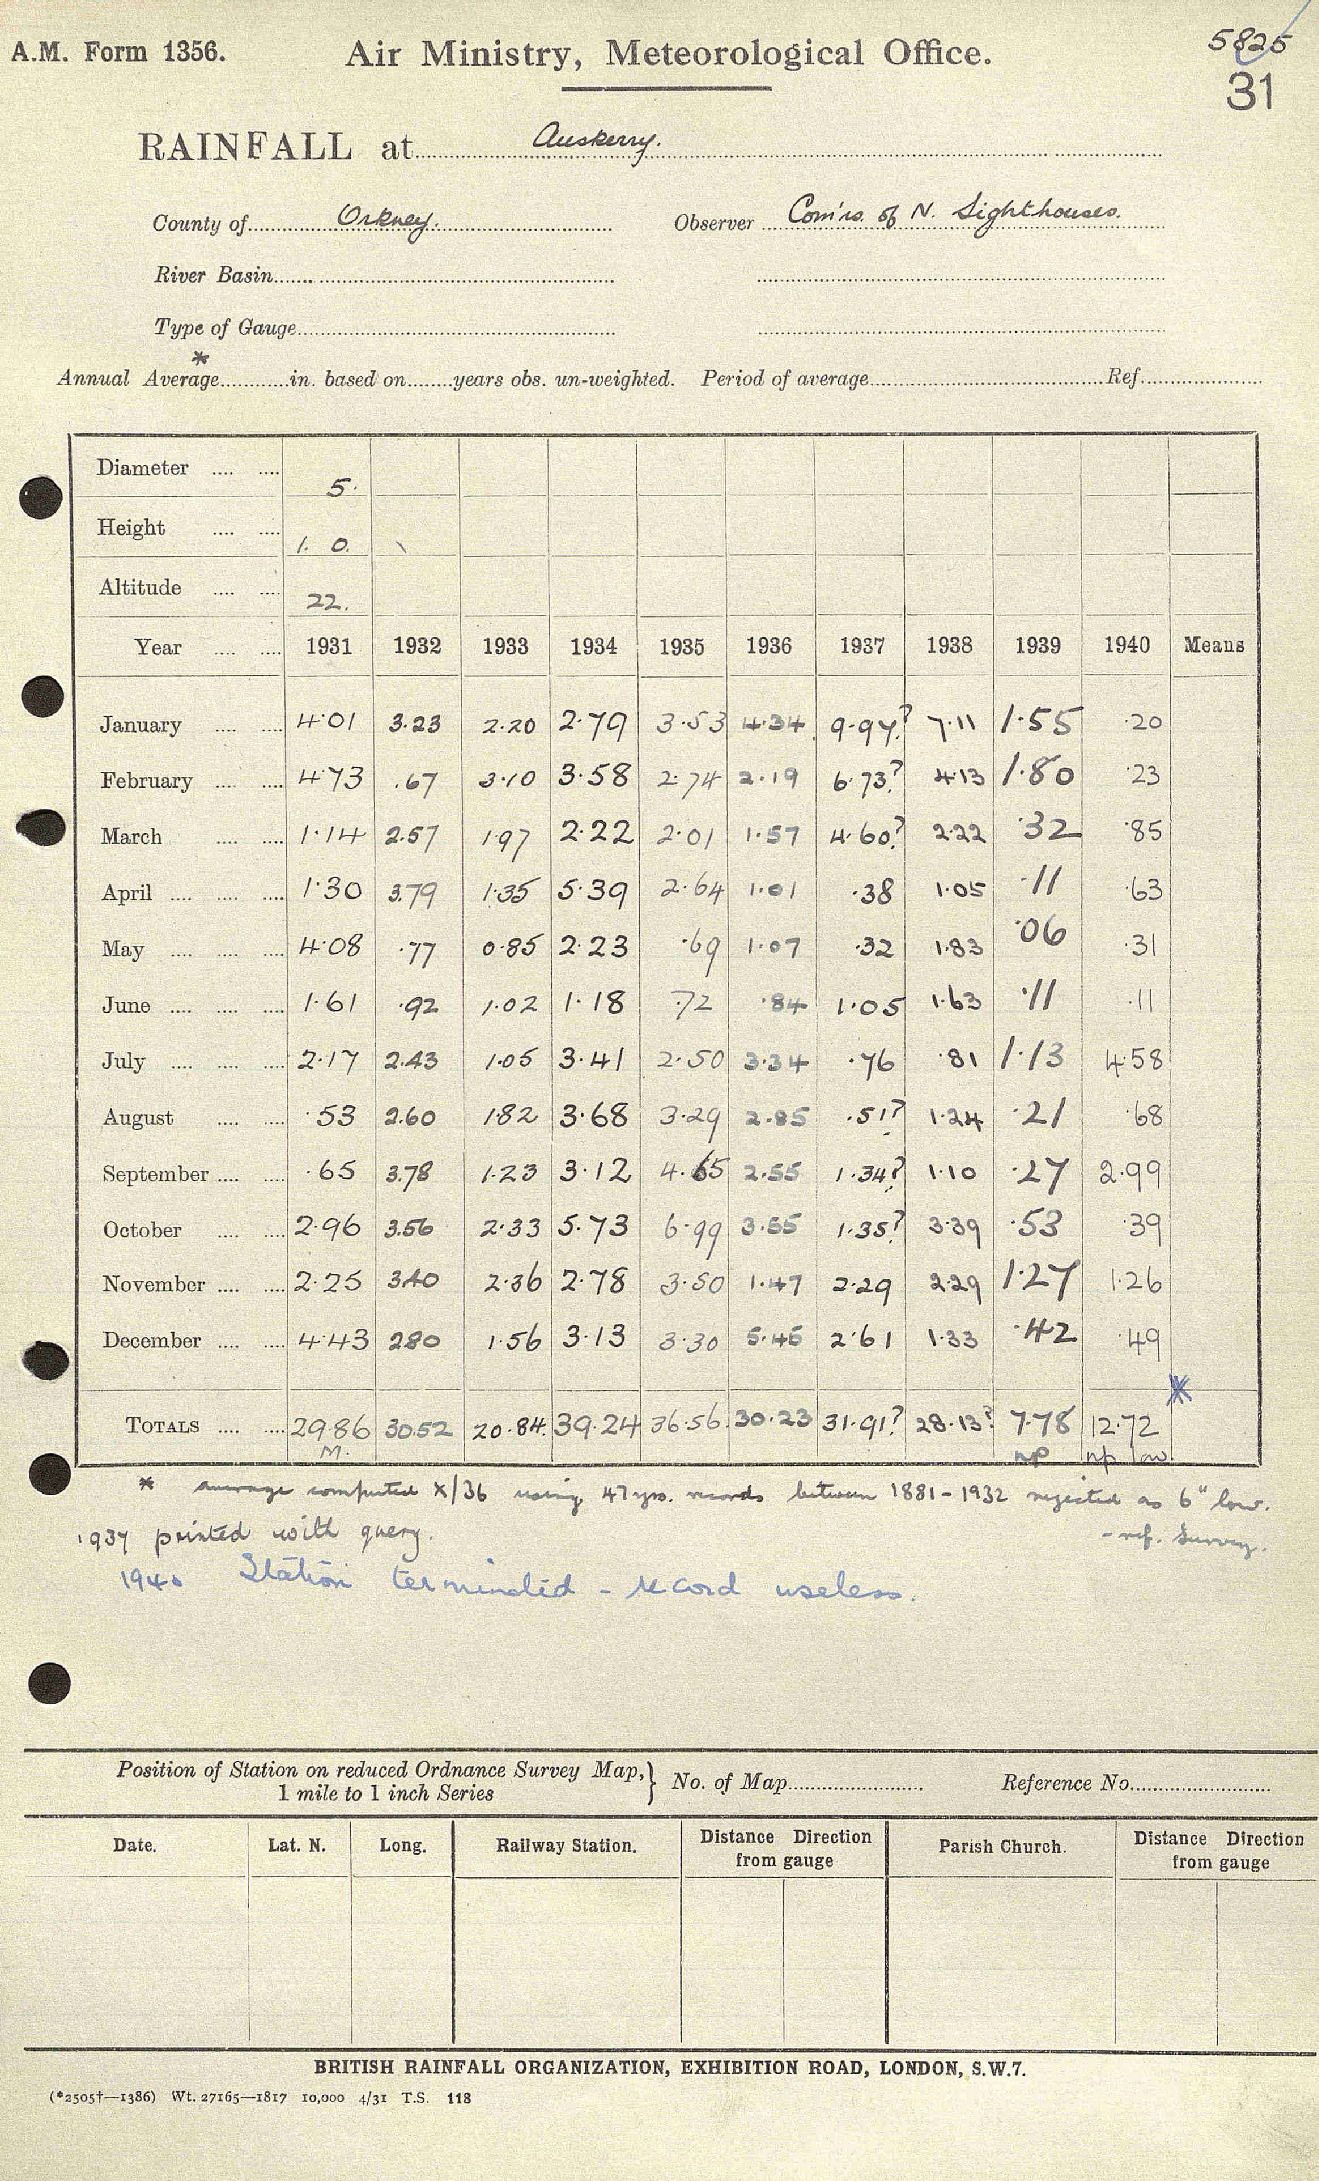 A.M. Form 1356. Air Ministry, Meteorological Office. 5825
31
RAINFALL at Auskerry.
County of Orkney. Observer Com'rs. of N. Lighthouses.
River Basin
Type of Gauge
*
Annual Average in. based on years obs. un-weighted. Period of average Ref.
Diameter 5.
Height 1. 0.
Altitude 22.
Year 1931 1932 1933 1934 1935 1936 1937 1938 1939 1940 Means
January 4·01 3.23 2·20 2·79 3·53 4·34 9·97? 7·11 1·55 ·20
February 4·73 .67 3·10 3·58 2·74 2·19 6·73? 4·13 1·80 ·23
March 1·14 2·57 1·97 2·22 2·01 1·57 4·60? 2·22 ·32 ·85
April 1·30 3.79 1·35 5·39 2·64 1·01 ·38 1·05 ·11 ·63
May 4·08 ·77 0·85 2·23 ·69 1·07 ·32 1·83 ·06 ·31
June 1·61 ·92 1·02 1·18 ·72 ·84 1·05 1·63 ·11 ·11
July 2·17 2·43 1·05 3·41 2·50 3·34 ·76 ·81 1·13 4·58
August ·53 2.60 1·82 3·68 3·29 2·85 ·51? 1·24 ·21 ·68
September ·65 3.78 1·23 3·12 4·65 2·55 1·34? 1·10 ·27 2·99
October 2·96 3.56 2·33 5·73 6·99 3·55 1·35? 3·39 ·53 ·39
November 2·25 3.40 2·36 2·78 3·50 1·47 2·29 2·29 1·27 1·26
December 4·43 2.80 1·56 3·13 3·30 5·45 2·61 1·33 ·42 ·49
*
TOTALS 29·86 30.52 20·84. 39·24 36·56 30·23 31·91? 28·13? 7·78 12·72
M. np np low.
* average computed X/36 using 47 yrs. records between 1881-1932 rejected as 6" low.
1937 printed with query. - ref. Survey.
1940 Station terminated - record useless.
Position of Station on reduced Ordnance Survey Map, } No. of Map Reference No.
1 mile to 1 inch Series
Date. Lat. N. Long. Railway Station. Distance Direction from gauge Parish Church. Distance Direction from gauge
BRITISH RAINFALL ORGANIZATION, EXHIBITION ROAD, LONDON, S.W.7.
(*2505†—1386) Wt. 27165—1817 10,000 4/31 T.S. 118